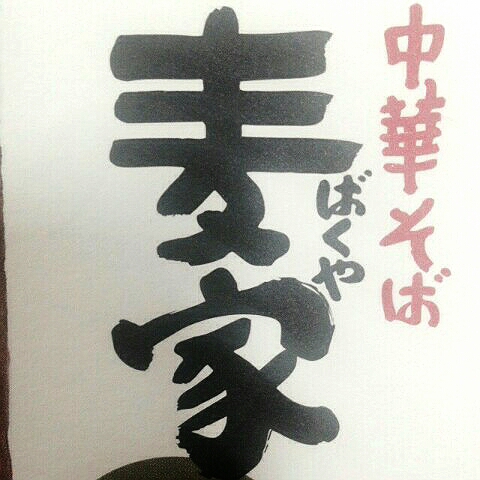 中華そば
麦家
ばくや